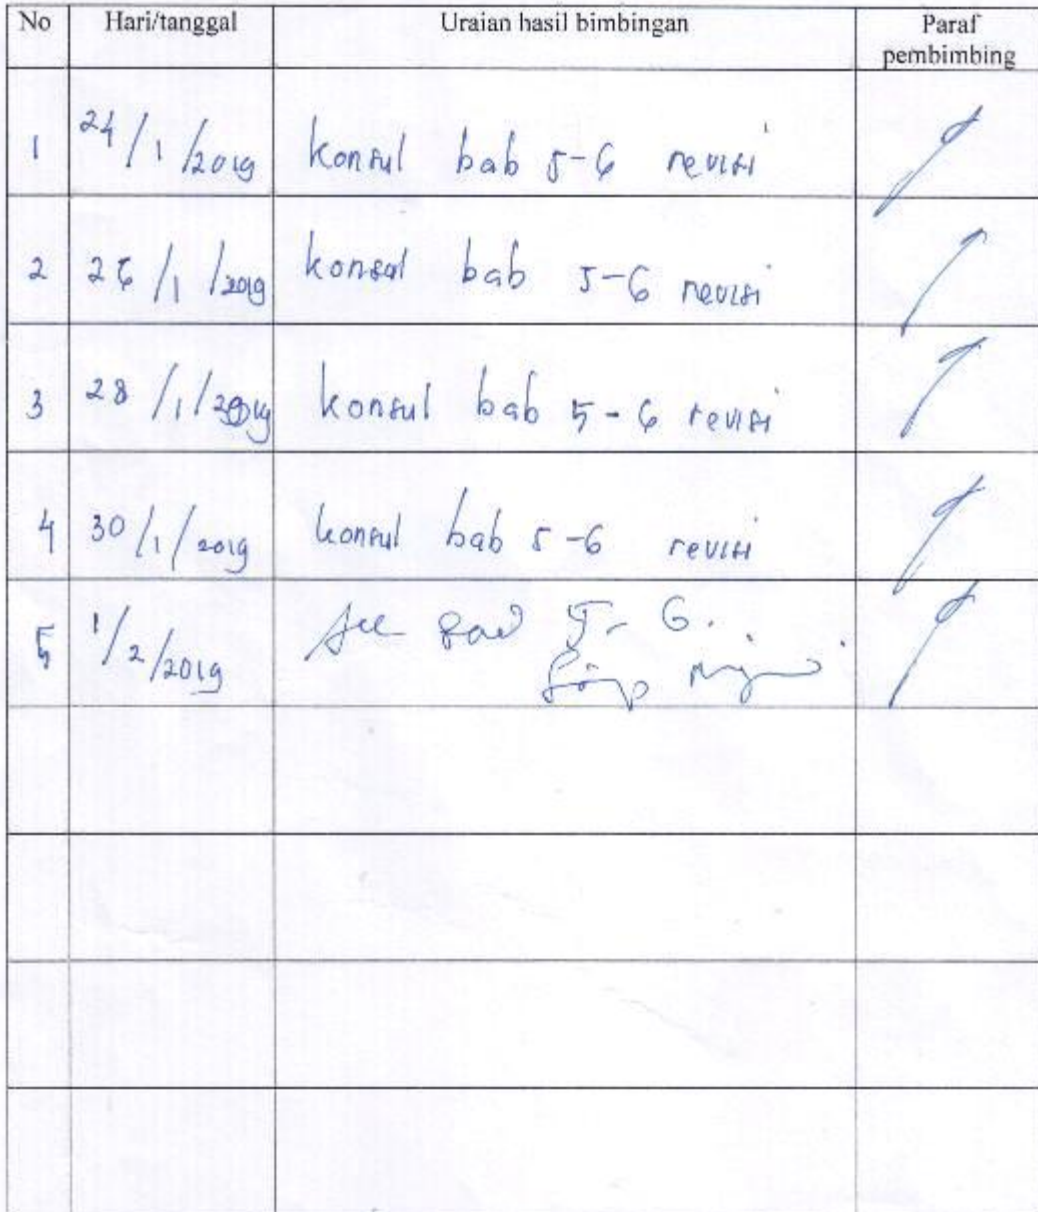 No Hari/tanggal Uraian hasil bimbingan Paraf
pembimbing
1 24/1/2019 konsul bab 5-6 revisi
2 /1/2019 konsul bab 5-6 revisi
3 28/1/2019 konsul bab 5-6 revisi
4 30/1/2019 konsul bab 5-6 revisi
5 1/2/2019 Acc bab 5-6.